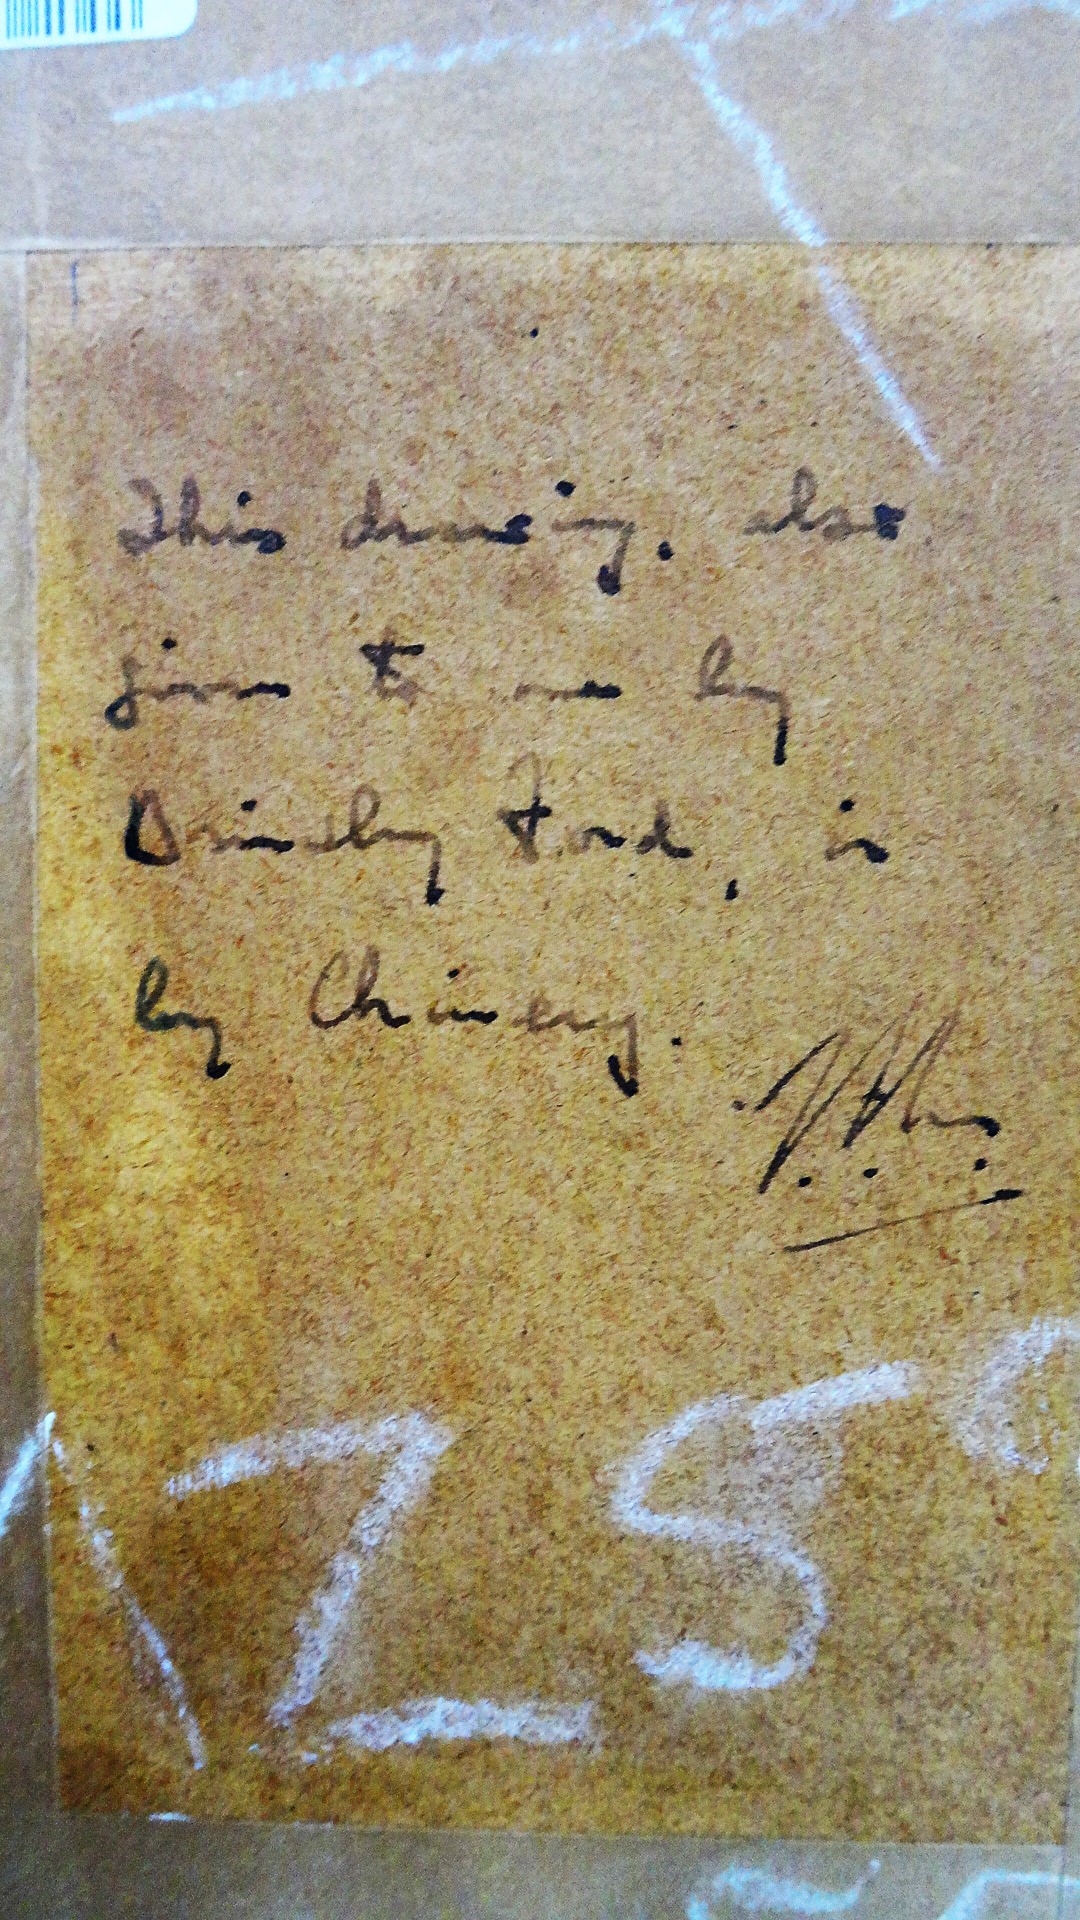 This drawing, also
given to me by
Brinsley Ford, is
by Chinnery.
75